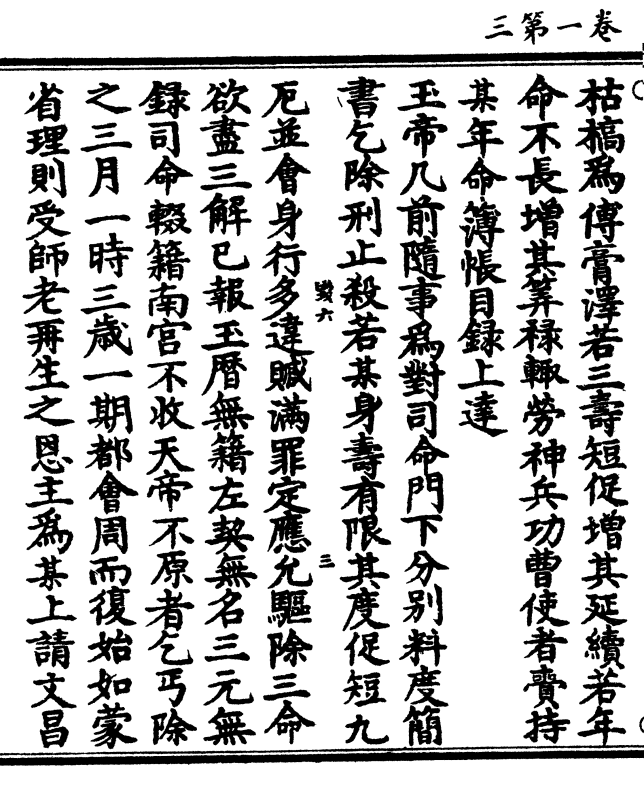 卷一第三
枯槁爲傅膏澤若三壽短促增其延續若年
命不長增其筭禄輙勞神兵功曹使者賷持
某年命簿帳目録上達
玉帝几前隨事爲對司命門下分别料度簡
書乞除刑止殺若某身壽有限其度促短九
六
三
厄並會身行多違贓滿罪定應允驅除三命
欲盡三解已報玉曆無籍左契無名三元無
録司命輟籍南宫不收天帝不原者乞丐除
之三月一時三歳一期都會周而復始如蒙
省理則受師老再生之恩主爲某上請文昌